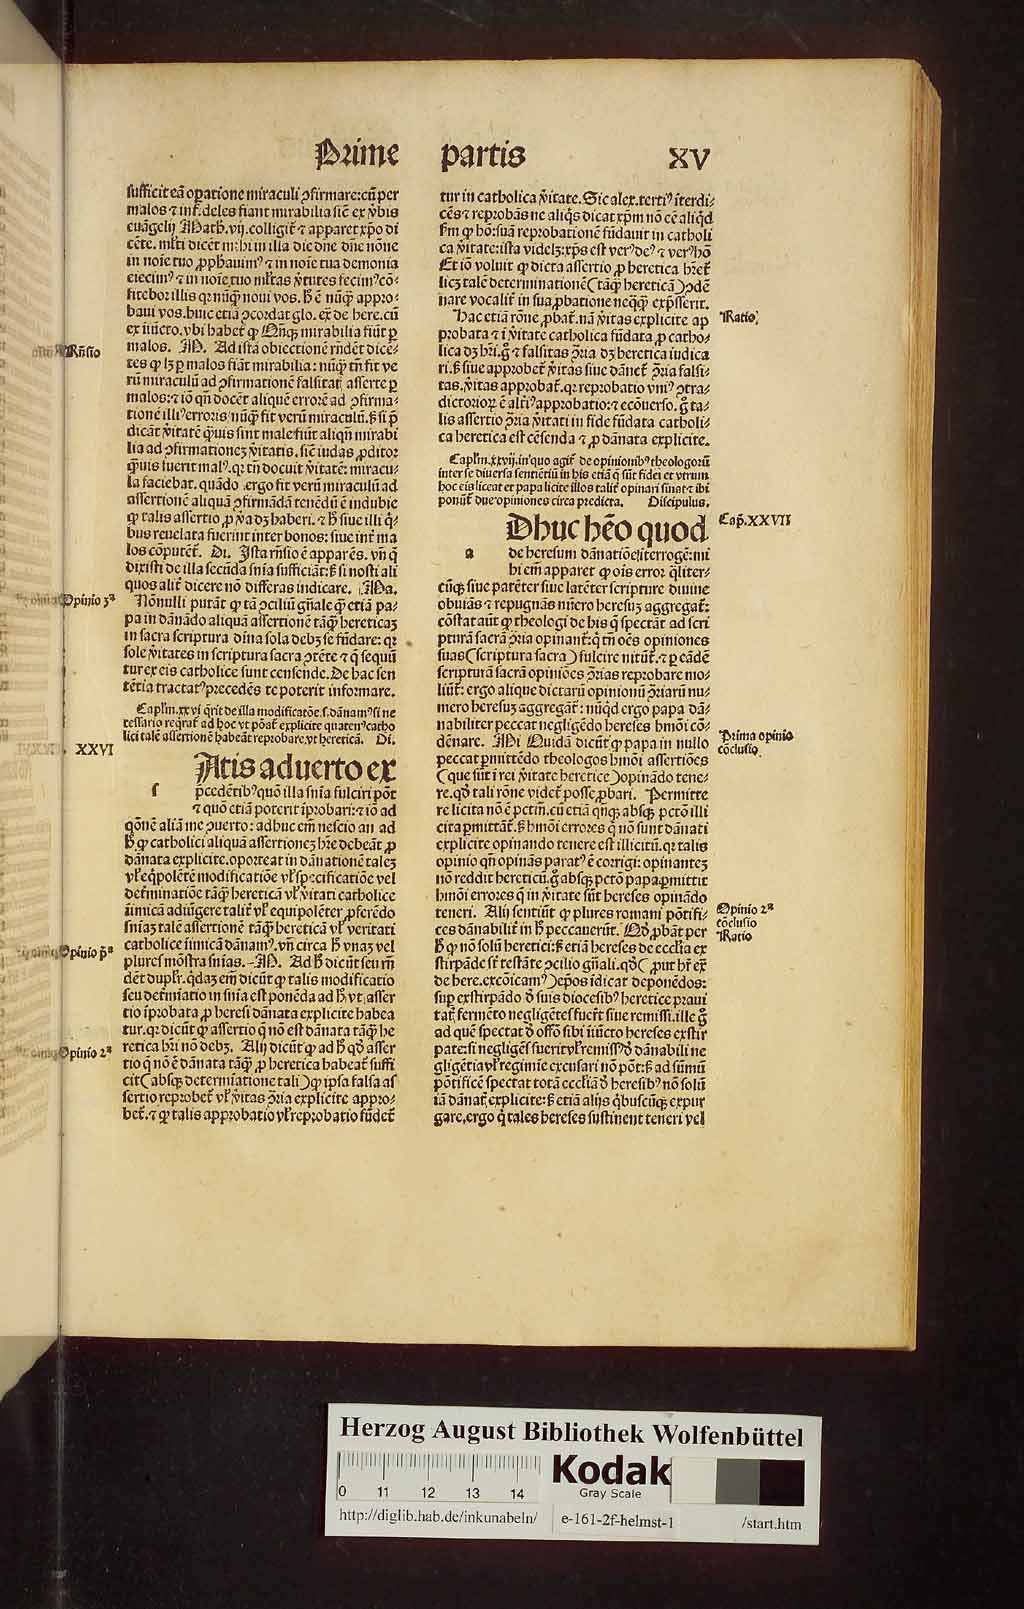 Prime partis XV
sufficit eā oꝑatione miraculi ꝯfirmare: cū per
malos ⁊ infideles fiant mirabilia sicē ex v̄bis
euāgelij Math. vij. colligit̄ ⁊ apparet xp̄o di
cēte. ml̄ti dicēt mihi in illa die dn̄e dn̄e nōne
in noīe tuo ꝓph̄auimꝰ ⁊ in noīe tuo demonia
eiecimꝰ ⁊ in noīe tuo ml̄tas v̄tutes fecimꝰ cō-
fitebor illis qr nūq̄ noui vos. H̄ ē nūq̄ appro-
baui vos. huic etiā ꝯcordat glo. ex̄ de here. cū
ex iniūcto. vbi habet̄ ꝙ
malos. M. Ad istā obiectionē rn̄dēt dicē-
tes ꝙ lꝫ ꝑ malos fiāt mirabilia: nūq̄ tn̄ fit ve
rū miraculū ad ꝯfirmationē falsitat̄ asserte ꝑ
malos: ⁊ iō qn̄ docēt aliquē errorē ad ꝯfirma-
tionē illiꝰ erroris nūq̄ fit verū miraculū. S̄ si p̄
dicāt v̄itatē q̄uis sint male fiūt aliqn̄ mirabi
lia ad ꝯfirmationeꝫ v̄itatis. sicē iudas ꝓditor
q̄uis fuerit malꝰ. qr tn̄ docuit v̄itatē: miracu-
la faciebat. quādo ergo fit verū miraculū ad
assertionē aliquā ꝯfirmādā tenēdū ē indubie
ꝙ talis assertio ꝓ v̄a dꝫ haberi. ⁊ H̄ siue illi q̄-
bus reuelata fuerint inter bonos: siue int̄ ma
los cōputēt̄. Di. Ista rn̄sio ē apparēs. vn̄ q̄
dixisti de illa secūda sn̄ia sufficiāt: S̄ si nosti ali
quos alit̄ dicere nō differas indicare. Ma.
Nōnulli putāt ꝙ tā ꝯciliū gn̄ale q̄ etiā pa-
pa in dānādo aliquā assertionē tāq̄ hereticaꝫ
in sacra scriptura diuina sola debꝫ se fūdare: qr
sole v̄itates in scriptura sacra ꝯtēte ⁊ q̄ sequū
tur ex eis catholice sunt censende. De hac sen
tētia tractatꝰ precedēs te poterit informare.
Caplm̄. xxvi q̄rit de illa modificatōe. s. dānamꝰ si ne
cessario reqrat̄ ad hoc vt pōat̄ explicite quatenꝰ catho
lici talē assertionē habeāt reprobare. vt heretica. Di.
XXVI
Atis aduerto ex
s p̄cedētibꝰ quō illa sn̄ia fulciri pōt
⁊ quō etiā poterit īprobari: ⁊ iō ad
qōnē aliā me ꝯuerto: adhuc em̄ nescio an ad
H̄ ꝙ catholici aliquā assertioneꝫ hr̄e debeāt ꝓ
dānata explicite. oporteat in dānationē taleꝫ
vl̄ eq̄polētē modificatiōe vl̄ specificatiōe vel
det̄minatiōe tāq̄ hereticā vl̄ v̄itati catholice
īimicā adiūgere talit̄ vl̄ equipolēter ꝓferēdo
sn̄iaꝫ talē assertionē tāq̄ hereticā vl̄ veritati
catholice īimicā dānamꝰ. vn̄ circa H̄ vnaꝫ vel
plures mōstra sn̄ias. M. Ad H̄ dicūt seu rn̄
dēt dupl̄r. q̄daꝫ em̄ dicūt ꝙ talis modificatio
seu det̄miatio in sn̄ia est ponēda ad H̄ vt asser
tio īprobata ꝓ heresi dānata explicite habea
tur. qr dicūt ꝙ assertio q̄ nō est dānata tāq̄ he
retica hr̄i nō debꝫ. Alij dicūt ꝙ ad H̄ qd̄ asser
tio q̄ nō ē dānata tāq̄ ꝓ heretica habeat̄ suffi
cit (absqꝫ determiatione tali) ꝙ ipsa falsa as
sertio reprobet̄ vl̄ v̄itas ꝯ̄ria explicite appro-
bet̄. ⁊ ꝙ talis approbatio vl̄ reprobatio fūdet̄
Rn̄sio
Opinio 3ᵃ
Opinio p̄ᵃ
Opinio 2ᵃ
tur in catholica v̄itate. Sic alex. tertiꝰ īterdi-
cēs ⁊ reprobās ne aliq̄s dicat xp̄m nō eē aliqd̄
Fm ꝙ hō: suā reprobationē fūdauit in catholi
ca v̄itate: ista videlꝫ: xp̄s est verꝰ deꝰ ⁊ verꝰ hō
Et iō voluit ꝙ dicta assertio ꝓ heretica hr̄et̄
licꝫ talē determinationē (tāq̄ hereticā) ꝯdē
nare vocalit̄ in sua ꝓbatione neq̄q̄ exp̄sserit.
Hac etiā rōne ꝓbat̄. nā v̄itas explicite ap
probata ⁊ ī v̄itate catholica fūdata ꝓ catho-
lica dꝫ hr̄i. g̊ ⁊ falsitas ꝯ̄ria dꝫ heretica iudica
ri. S̄ siue approbet̄ v̄itas siue dānet̄ ꝯ̄ria falsi-
tas. v̄itas approbat̄. qr reprobatio vniꝰ ꝯtra-
dictorioꝝ ē alt̄iꝰ approbatio: ⁊ ecōuerso. g̊ ta-
lis assertio ꝯ̄ria v̄itati in fide fūdata catholi-
ca heretica est cēsenda ⁊ ꝓ dānata explicite.
Caplm̄. xxvij. in quo agit̄ de opinionibꝰ theologorū
inter se diuersa sentiētiū in his etiā q̄ sūt fidei et vtrum
hoc eis liceat et papa licite illos talit̄ opinari sinat ⁊ ibi
ponūt̄ due opiniones circa predicta. Discipulus.
Dhuc hēo quod
a de heresum dānatiōe īterrogē: mi
hi em̄ apparet ꝙ ois error q̄liter-
cūqꝫ siue patēter siue latēter scripture diuine
obuiās ⁊ repugnās nūero heresuꝫ aggregat̄:
cōstat aūt ꝙ theologi de his q̄ spectāt ad scri
pturā sacrā ꝯ̄ria opinant̄: q̄ tn̄ oēs opiniones
suas (scriptura sacra) fulcire nitūt̄. ⁊ ꝑ eādē
scripturā sacrā opiniōes ꝯ̄rias reprobare mo-
liūt̄: ergo alique dictarū opinionū ꝯ̄riarū nu-
mero heresuꝫ aggregat̄: nūqd̄ ergo papa dā-
nabiliter peccat negligēdo hereses hmōi cō-
dēnare. M̄i Quidā dicūt ꝙ papa in nullo
peccat ꝑmittēdo theologos hmōi assertiōes
(que sūt ī rei v̄itate heretice) opinādo tene-
re. qd̄ tali rōne videt̄ posse ꝓbari. Permitte
re licita nō ē pctm̄. cū etiā qn̄qꝫ absqꝫ pctō illi
cita ꝑmittāt̄. S̄ hmōi errores q̄ nō sunt dānati
explicite opinando tenere est illicitū. qr talis
opinio qn̄ opinās paratꝰ ē corrigi: opinanteꝫ
nō reddit hereticū. g̊ absqꝫ pctō papa ꝑmittit
hmōi errores q̄ in v̄itate sūt hereses opinādo
teneri. Alij sentiūt ꝙ plures romani pōtifi-
ces dānabilit̄ in H̄ peccauerūt. Qd̄ ꝓbāt per
H̄ ꝙ nō solū heretici: S̄ etiā hereses de ecclīa ex
stirpāde sūt testāte ꝯcilio gn̄ali. qd̄ (ꝓut hr̄ ex̄
de here. excōicamꝰ) ep̄os īdicat deponēdos:
suꝑ exstirpādo d̄ suis diocesibꝰ heretice praui
tat̄ fermēto negligētes fuerīt siue remissi. ille g̊
ad quē spectat d̄ offō sibi iniūcto hereses exstir
pare: si negligēs fuerit vl̄ remissꝰ d̄ dānabili ne
gligētia vl̄ regimīe excusari nō pōt: S̄ ad sūmū
pōtificē spectat totā ecclīā d̄ heresibꝰ nō solū
iā dānat̄ explicite: S̄ etiā alijs q̄buscūqꝫ expur
gare. ergo q̄ tales hereses sustinent teneri vel
Ratio.
Cap̄. XXVII
Prima opinio
cōclusio.
Opinio 2ᵃ
cōclusio
Ratio
Herzog August Bibliothek Wolfenbüttel
Kodak
Gray Scale
0 11 12 13 14
http://diglib.hab.de/inkunabeln/ e-161-2f-helmst-1 /start.htm